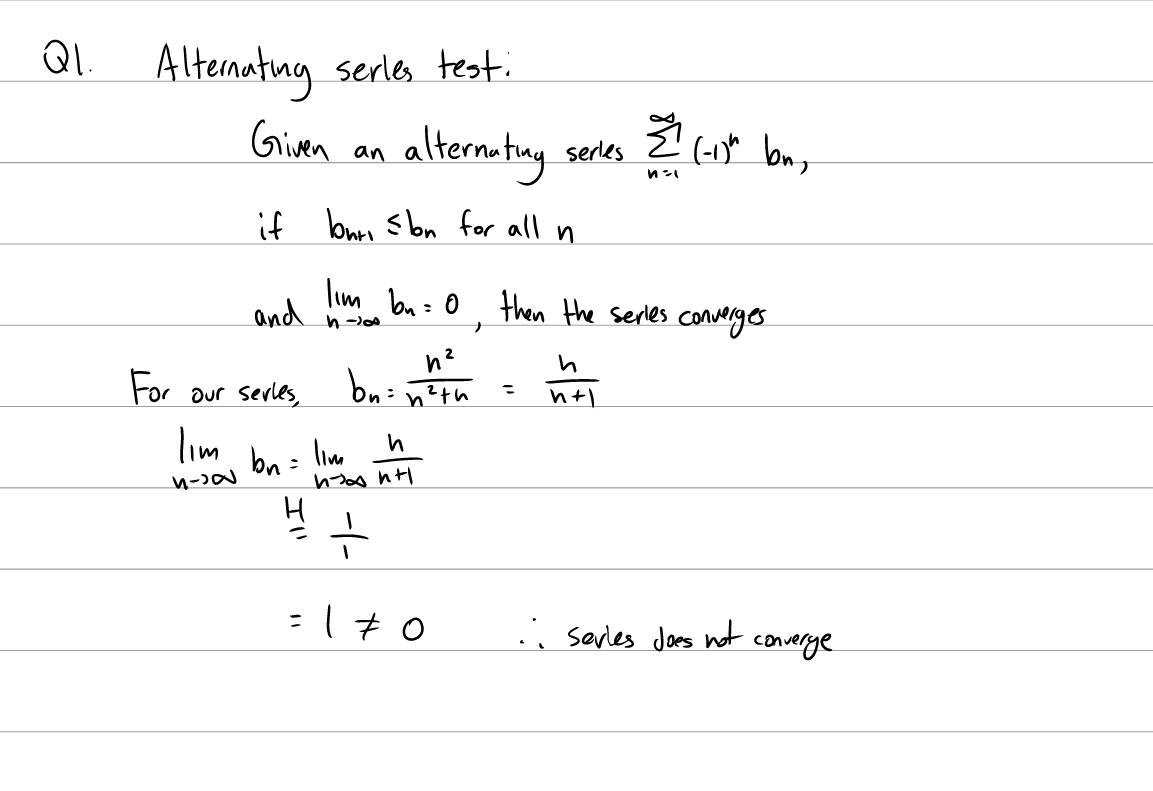 Q1. Alternating series test:
Given an alternating series ∑_{n=1}^{∞} (-1)^n b_n,
if b_{n+1} ≤ b_n for all n
and lim_{n→∞} b_n = 0, then the series converges
For our series, b_n = n²/(n²+n) = n/(n+1)
lim_{n→∞} b_n = lim_{n→∞} n/(n+1)
H= 1/1
= 1 ≠ 0 ∴ series does not converge